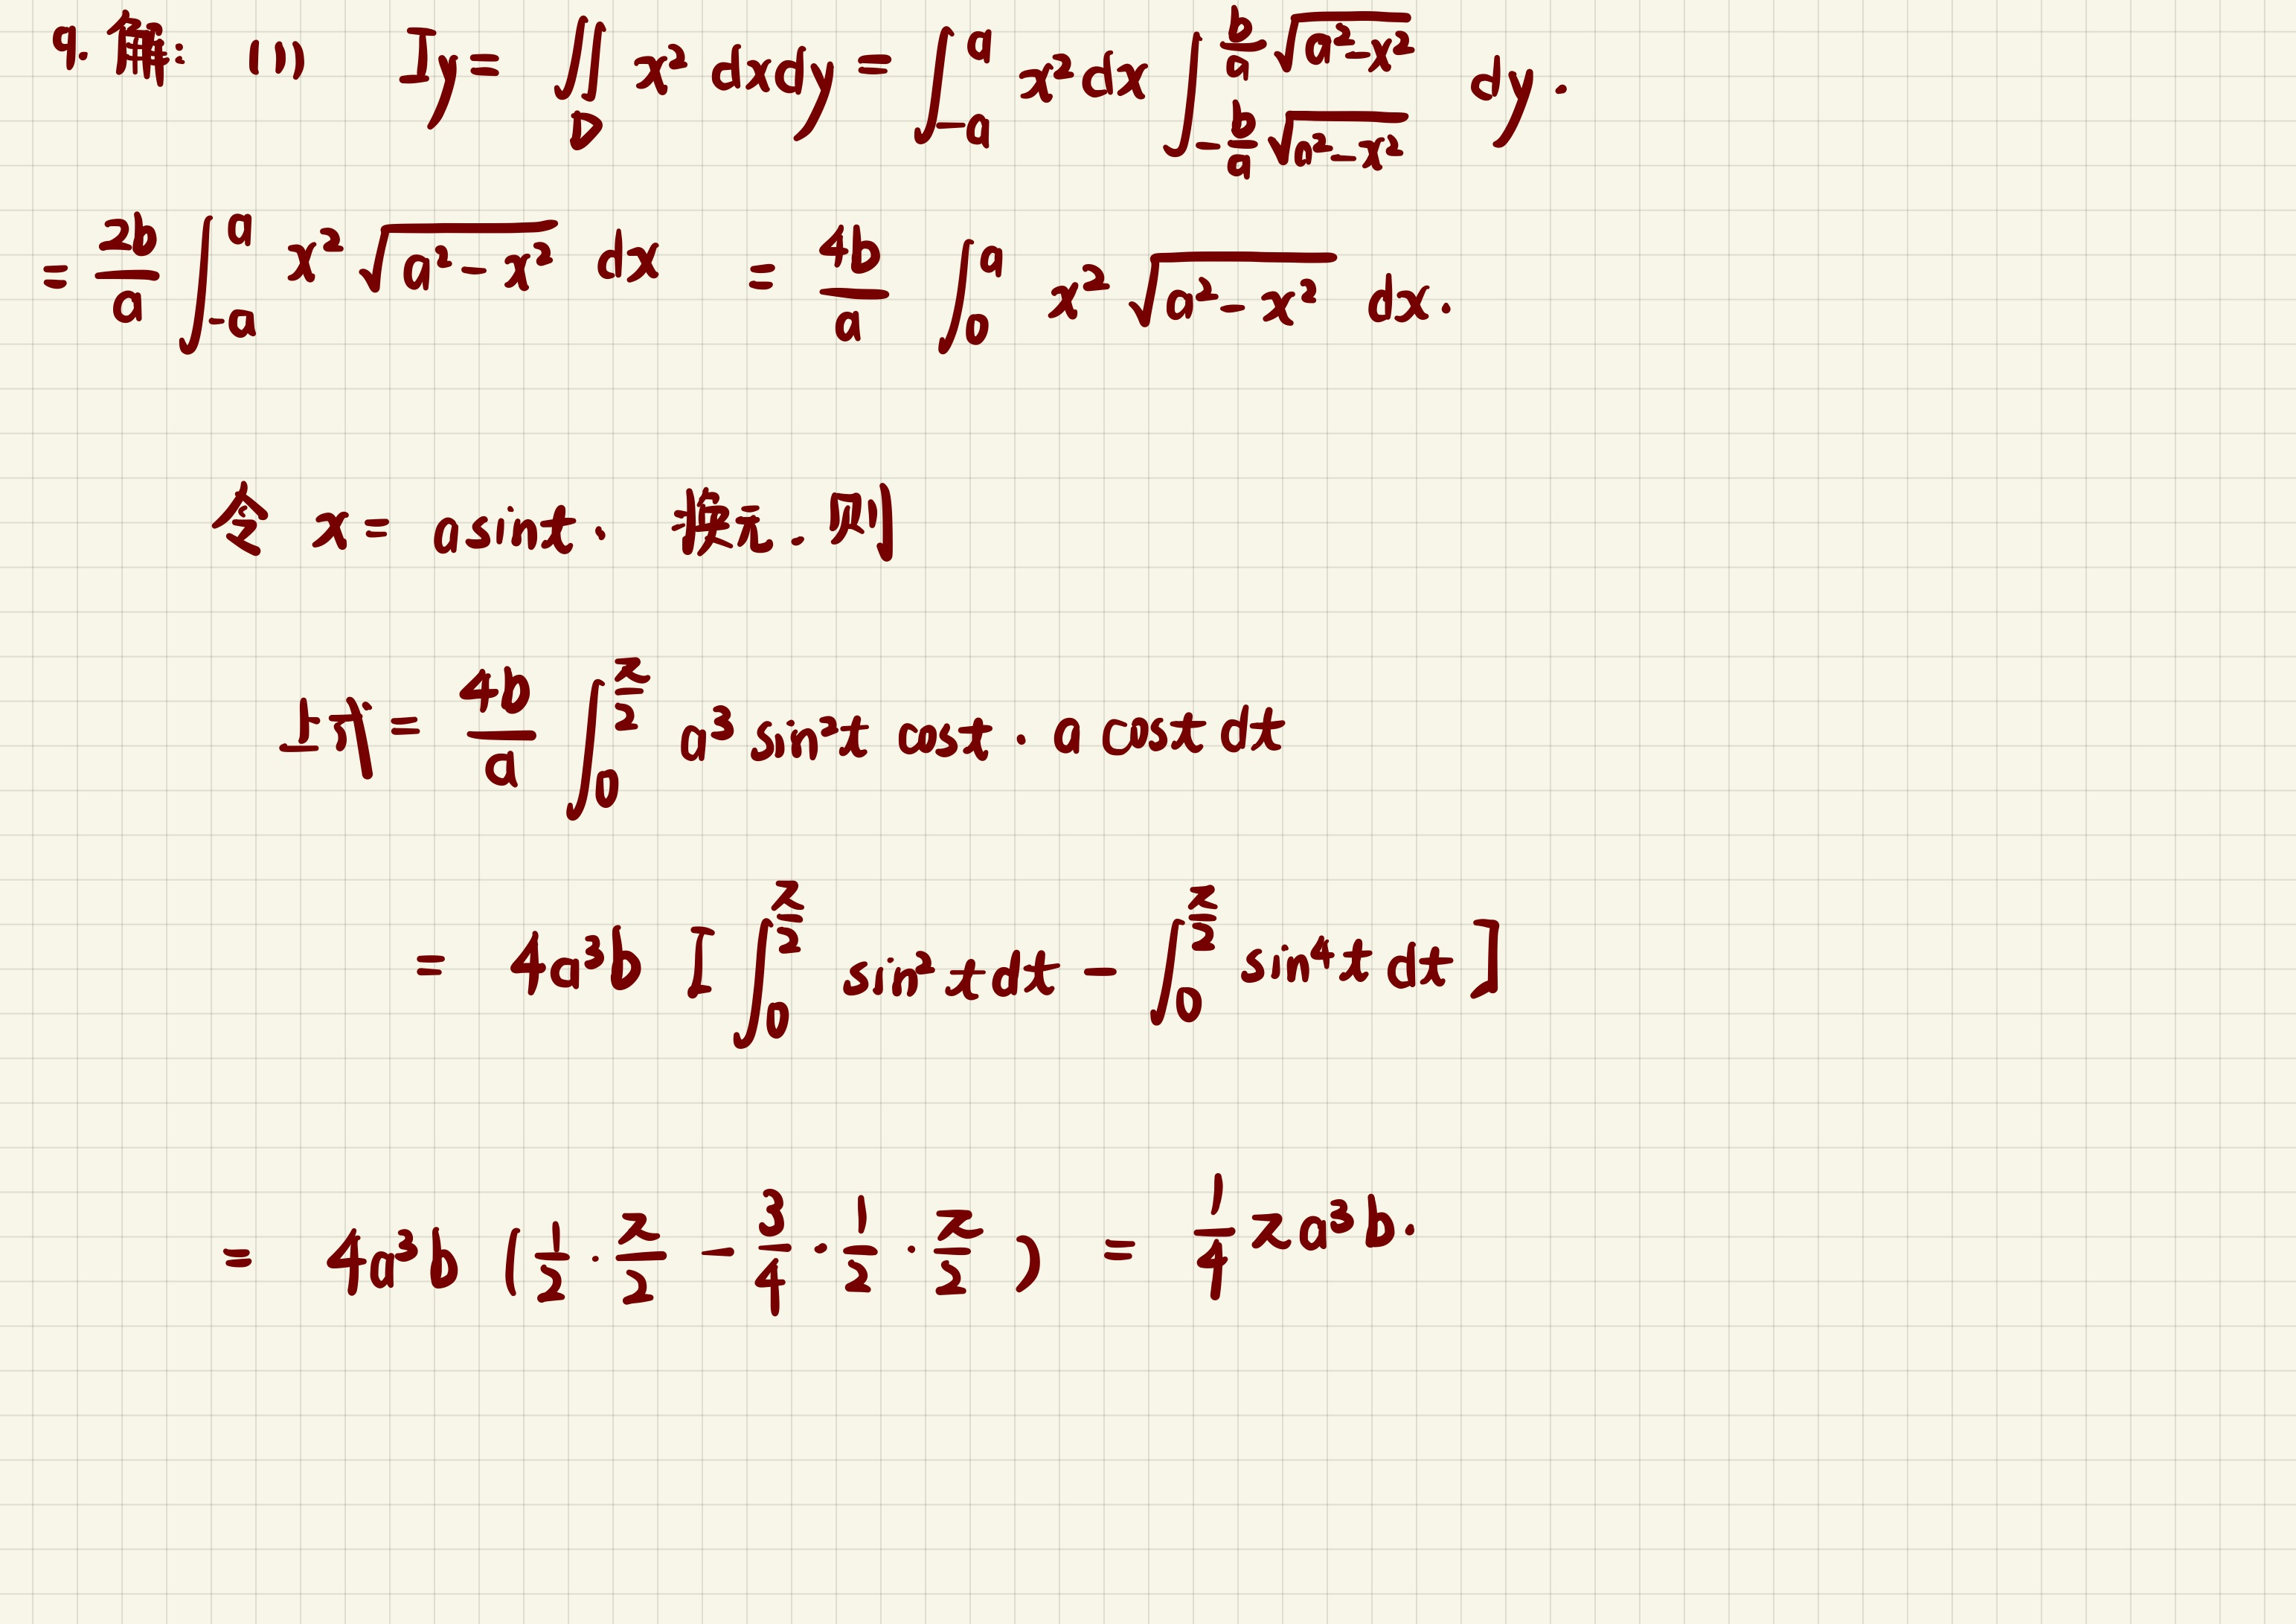 9. 解: (1) I_y = ∬_D x² dxdy = ∫_{-a}^{a} x² dx ∫_{-\frac{b}{a}\sqrt{a²-x²}}^{\frac{b}{a}\sqrt{a²-x²}} dy.
= \frac{2b}{a} ∫_{-a}^{a} x² \sqrt{a²-x²} dx = \frac{4b}{a} ∫_{0}^{a} x² \sqrt{a²-x²} dx.
令 x = asint. 换元. 则
上式 = \frac{4b}{a} ∫_{0}^{\frac{π}{2}} a³ sin²t cost · a cost dt
= 4a³b [ ∫_{0}^{\frac{π}{2}} sin²t dt - ∫_{0}^{\frac{π}{2}} sin⁴t dt ]
= 4a³b ( \frac{1}{2} · \frac{π}{2} - \frac{3}{4} · \frac{1}{2} · \frac{π}{2} ) = \frac{1}{4} π a³ b.